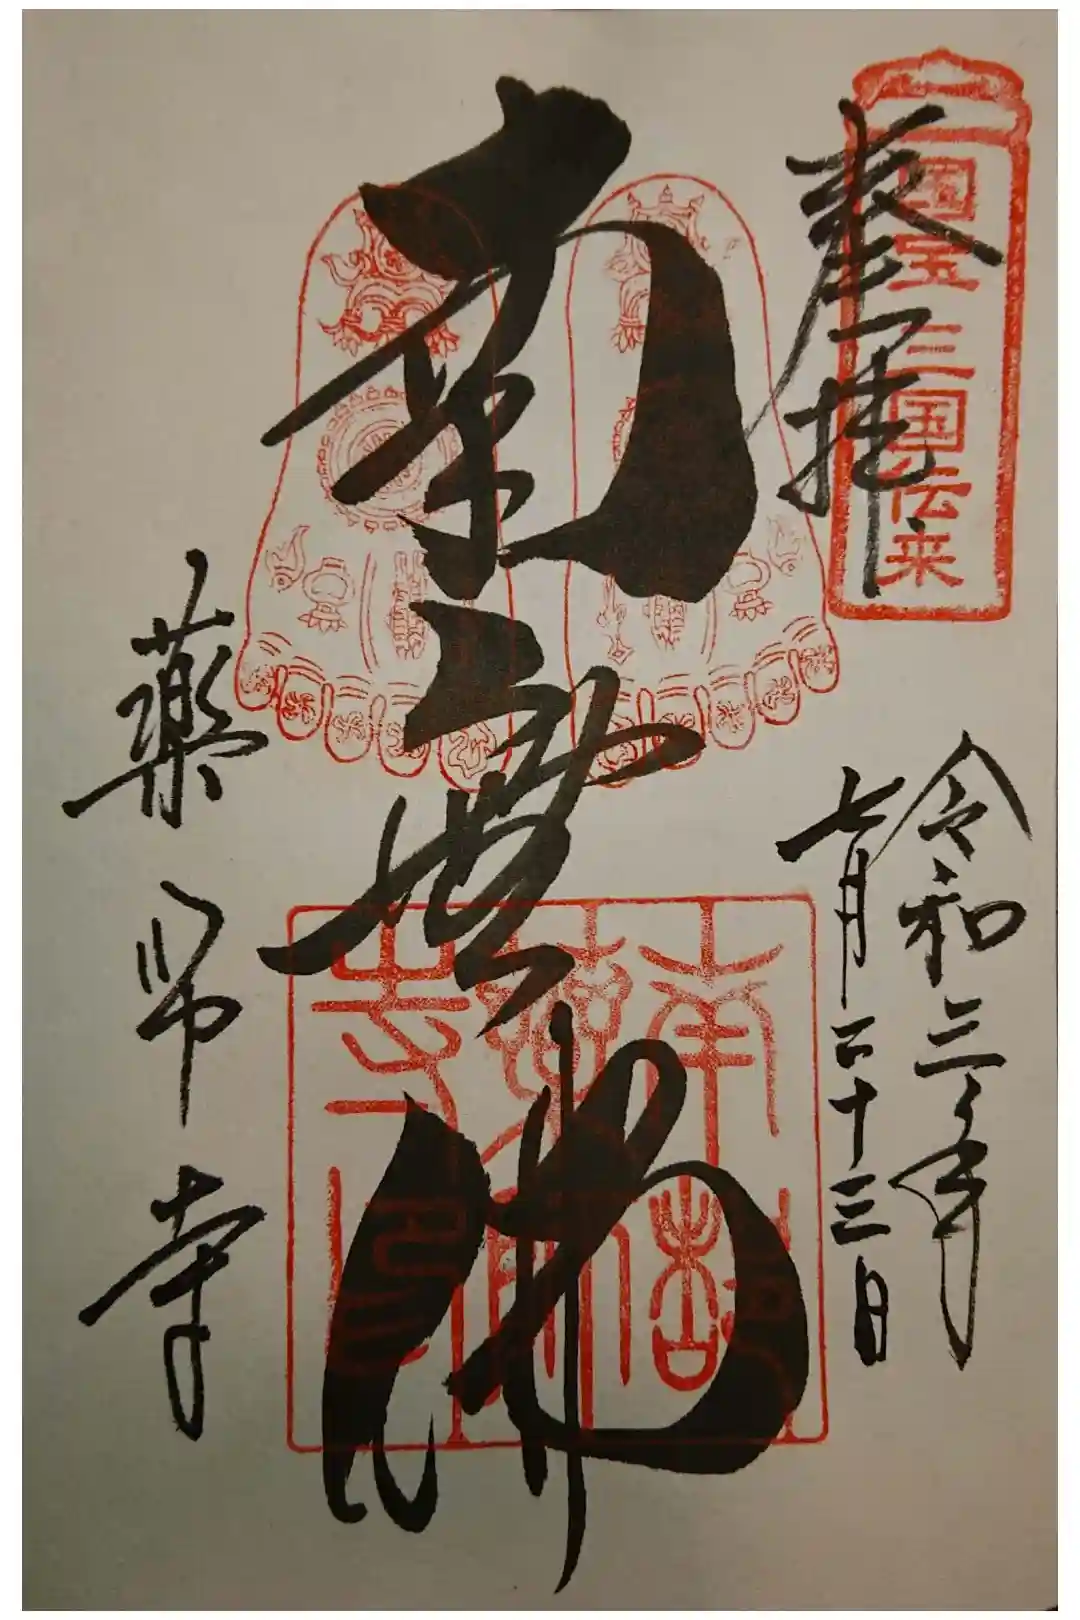 奉拝
国宝 三国伝来
令和三年
七月二十三日
南無佛
薬師寺